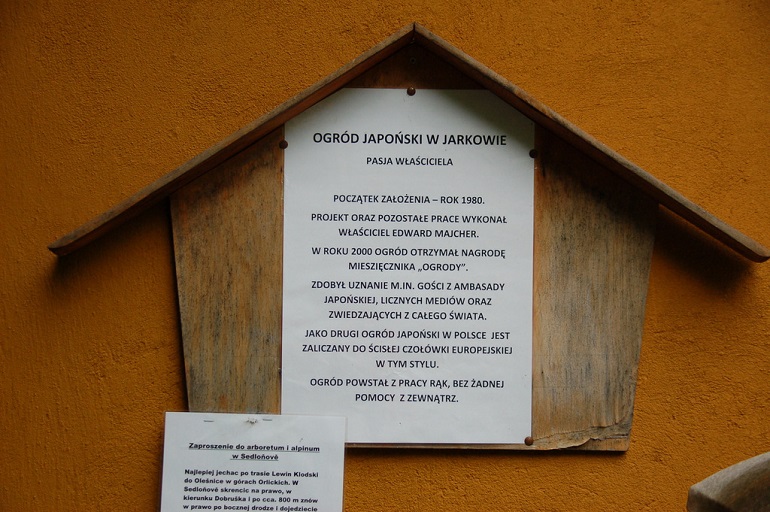 OGRÓD JAPOŃSKI W JARKOWIE
PASJA WŁAŚCICIELA
POCZĄTEK ZAŁOŻENIA – ROK 1980.
PROJEKT ORAZ POZOSTAŁE PRACE WYKONAŁ
WŁAŚCICIEL EDWARD MAJCHER.
W ROKU 2000 OGRÓD OTRZYMAŁ NAGRODĘ
MIESZIĘCZNIKA „OGRODY”.
ZDOBYŁ UZNANIE M.IN. GOŚCI Z AMBASADY
JAPOŃSKIEJ, LICZNYCH MEDIÓW ORAZ
ZWIEDZAJĄCYCH Z CAŁEGO ŚWIATA.
JAKO DRUGI OGRÓD JAPOŃSKI W POLSCE JEST
ZALICZANY DO ŚCISŁEJ CZOŁÓWKI EUROPEJSKIEJ
W TYM STYLU.
OGRÓD POWSTAŁ Z PRACY RĄK, BEZ ŻADNEJ
POMOCY Z ZEWNĄTRZ.
Zaproszenie do arboretum i alpinum
w Sedloňově
Najlepiej jechac po trasie Lewin Klodski
do Olešnice w górach Orlickich. W
Sedloňově skrencic na prawo, w
kierunku Dobruška i po cca. 800 m znów
w prawo po bocznej drodze i dojedziecie